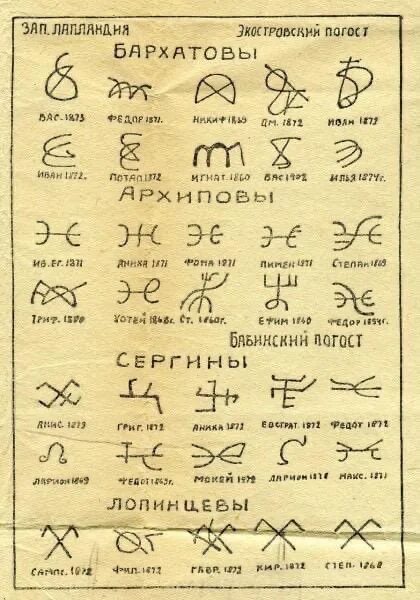 ЗАП. ЛАПЛАНДИЯ ЭКОСТРОВСКИЙ ПОГОСТ
БАРХАТОВЫ
ВАС. 1873 ФЕДОР 1871. НИКИФ 1869 ДМ. 1872 ИВАН 1872
ИВАН 1872. ПОТАП 1872 ИГНАТ. 1860 ВАС 1902 ИЛЬЯ 1874 г.
АРХИПОВЫ
ИВ. ЕГ. 1871 АНИКА 1871 ФОМА 1871 ПИМЕН 1871 СТЕПАН 1869
ТРИФ. ХОТЕЙ 1868 г. СТ. 1860 г. ЕФИМ 1860 ФЕДОР 1854 г.
БАБИНСКИЙ ПОГОСТ
СЕРГИНЫ
АНИС. 1873 ГРИГ. 1872 АНИКА 1872 ЕВСТРАТ. 1872 ФЕДОТ 1872
ЛАРИОН 1869 ФЕДОТ 1869 г. МОКЕЙ 1872 ЛАРИОН 1871 МАКС. 1871
ЛОПИНЦЕВЫ
САМПС. 1872 ФИЛ. 1872 ГАВР. 1872 КИР. 1872 СТЕП. 1868